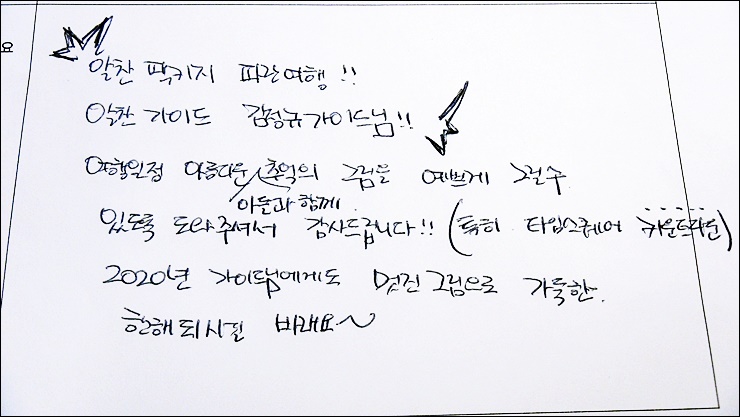 알찬 팩키지 파란여행!!
알찬 가이드 김정규가이드님!!
여행일정 아름다운 추억의 그림을 예쁘게 그릴수
아들과 함께
있도록 도와주셔서 감사드립니다!! (특히 타임스퀘어 카운트다운)
2020년 가이드님에게도 멋진 그림으로 가득한
한해되시길 바래요~